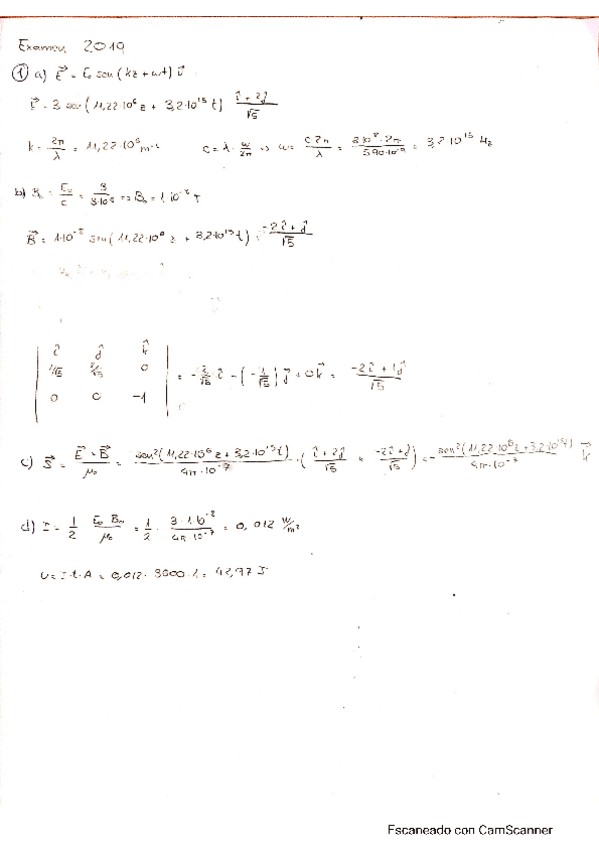 Examen 2019
① a) E⃗ = E₀ sen (kz + ωt) û
E⃗ = 3 sen (11,22·10⁶ z + 3,2·10¹⁵ t) (î + 2ĵ)/√5
k = 2π/λ = 11,22·10⁶ m⁻¹   c = λ · ω/2π ⇒ ω = c 2π/λ = 3·10⁸ · 2π / 590·10⁻⁹ = 3,2·10¹⁵ Hz
b) B₀ = E₀/c = 3/3·10⁸ ⇒ B₀ = 1·10⁻⁸ T
B⃗ = 1·10⁻⁸ sen (11,22·10⁶ z + 3,2·10¹⁵ t) · (-2î + ĵ)/√5
| î ĵ k̂ |
| 1/√5 2/√5 0 | = -2/√5 î - (-1/√5) ĵ + 0 k⃗ = (-2î + 1ĵ)/√5
| 0 0 -1 |
c) S⃗ = E⃗ × B⃗ / μ₀ = sen² (11,22·10⁶ z + 3,2·10¹⁵ t) / 4π·10⁻⁷ · ( (î + 2ĵ)/√5 × (-2î + ĵ)/√5 ) = - sen² (11,22·10⁶ z + 3,2·10¹⁵ t) / 4π·10⁻⁷ k⃗
d) I = 1/2 E₀ B₀/μ₀ = 1/2 · 3·1·10⁻⁸ / 4π·10⁻⁷ = 0,012 W/m²
U = I·t·A = 0,012 · 3600 · 1 = 42,97 J
Escaneado con CamScanner